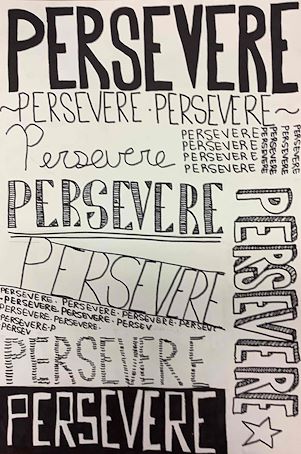 PERSEVERE
~PERSEVERE · PERSEVERE~
Persevere
PERSEVERE
PERSEVERE
PERSEVERE
PERSEVERE
PERSEVERE
PERSEVERE
PERSEVERE
PERSEVERE
PERSEVERE
PERSEVERE
PERSEVERE
PERSEVERE · PERSEVERE · PERSEVERE · PERSEVERE
· PERSEVERE · PERSEVERE · PERSEVERE · PERSEVE
PERSEVERE · PERSEVERE · PERSEV
PERSEVERE · P
PERSEV
PERSEVERE
PERSEVERE
PERSEVERE